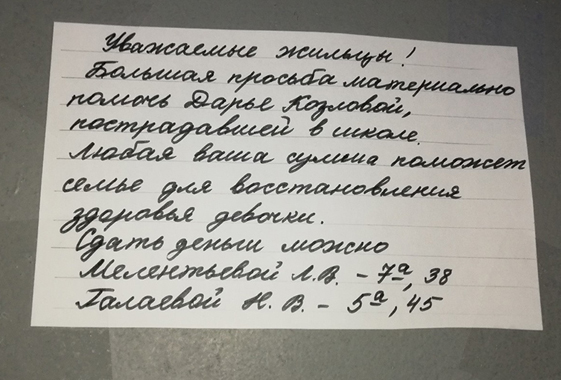 Уважаемые жильцы!
Большая просьба материально
помочь Дарье Козловой,
пострадавшей в школе.
Любая ваша сумма поможет
семье для восстановления
здоровья девочки.
Сдать деньги можно
Мелентьевой Л.В. – 7а, 38
Галаевой Н. В. – 5а, 45